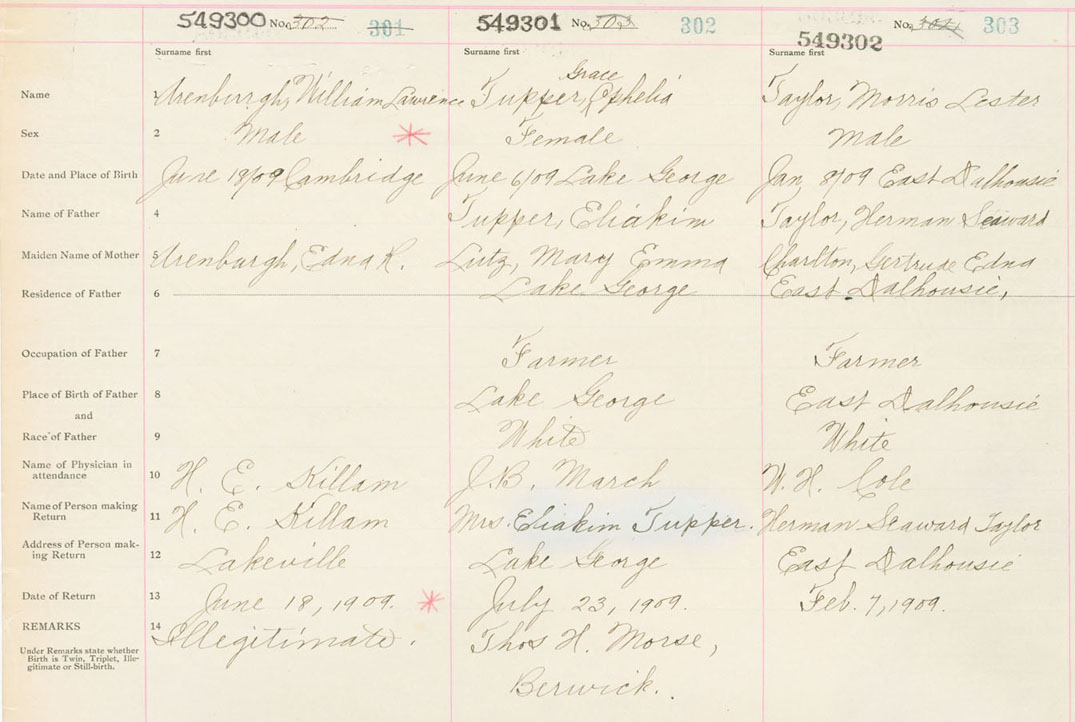 549300 No. 302 301 549301 No. 303 302 No. 303
549302
Surname first Surname first Surname first
Grace
Name 1 Arenburgh, William Lawrence Tupper, Ophelia Taylor, Morris Lester
Sex 2 Male Female Male
Date and Place of Birth June 18/09 Cambridge June 6/09 Lake George Jan 8/09 East Dalhousie
Name of Father 4 Tupper, Eliakim Taylor, Herman Seaward
Maiden Name of Mother 5 Arenburgh, Edna R. Lutz, Mary Emma Charlton, Gertrude Edna
Residence of Father 6 Lake George East Dalhousie,
Occupation of Father 7 Farmer Farmer
Place of Birth of Father 8 Lake George East Dalhousie
and
Race of Father 9 White White
Name of Physician in
attendance 10 H. E. Killam J.B. March W. H. Cole
Name of Person making
Return 11 H. E. Killam Mrs. Eliakim Tupper. Herman Seaward Taylor
Address of Person mak-
ing Return 12 Lakeville Lake George East Dalhousie
Date of Return 13 June 18, 1909. July 23, 1909. Feb. 7, 1909.
REMARKS 14 Illegitimate. Thos H. Morse,
Under Remarks state whether
Birth is Twin, Triplet, Ille-
gitimate or Still-birth.
Berwick.